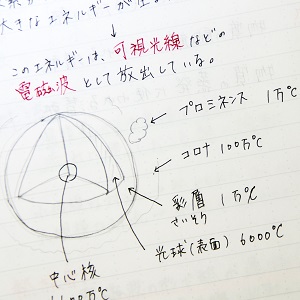 大きなエネルギーが
↓
このエネルギーは、可視光線などの
電磁波として放出している。
プロミネンス 1万℃
コロナ 100万℃
彩層 1万℃
さいそう
光球(表面) 6000℃
中心核
00万℃